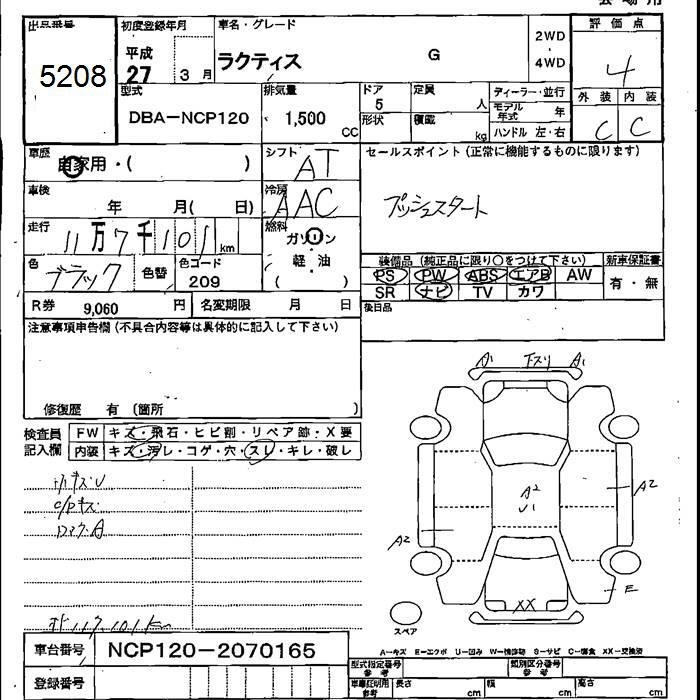 会場用
出品番号 初度登録年月 車名・グレード 評価点
5208 平成 27 3月 ラクティス G 2WD ・ 4WD 4
型式 排気量 ドア 定員 ディーラー・並行 外装 内装
DBA-NCP120 1,500 CC 5 人 モデル年式 年 C C
形状 積載 kg ハンドル 左・右
車歴 自家用・( ) シフト AT セールスポイント(正常に機能するものに限ります)
車検 年 月( 日) 冷房 AAC プッシュスタート
走行 11万7千101km 燃料 ガソリン ・ 軽・油 ( )
色 ブラック 色替 色コード 209
装備品(純正品に限り○をつけて下さい) 新車保証書
PS PW ABS エアB AW 有・無
SR ナビ TV カワ
R券 9,060 円 名変期限 月 日 後日品
注意事項申告欄(不具合内容等は具体的に記入して下さい)
修復歴 有〔箇所 〕
検査員記入欄 FW キズ・飛石・ヒビ割・リペア跡・X要
内装 キズ・汚レ・コゲ・穴・スレ・キレ・破レ
A1 下スリ A1
A2
U1
A2
A2
E
XX
スペア
車台番号 NCP120-2070165
登録番号
A-キズ E-エクボ U-凹み W-補修跡 S-サビ C-腐食 XX-交換済
型式指定番号 参考 類別区分番号 参考
車庫証明用 参考 長さ cm 幅 cm 高さ cm